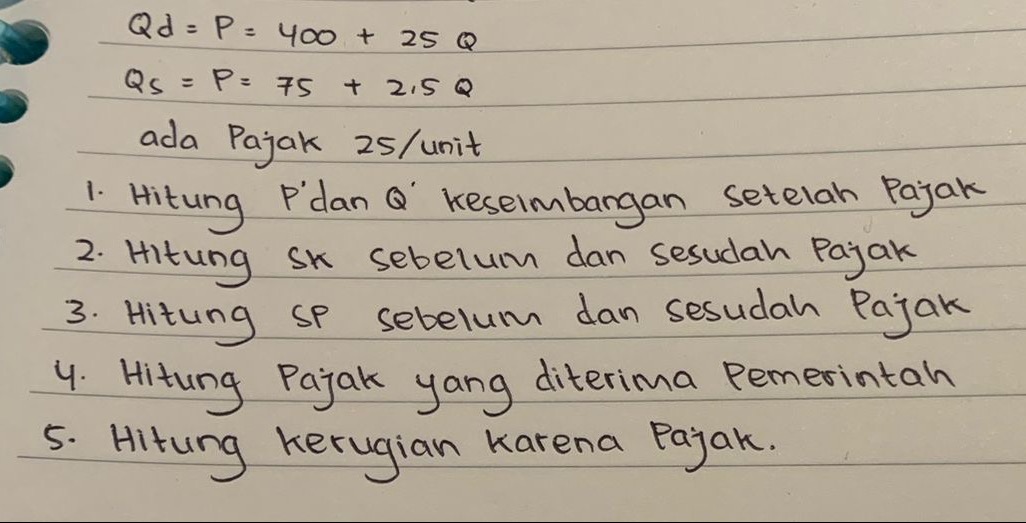 Qd = P = 400 + 25 Q
Qs = P = 75 + 2,5 Q
ada Pajak 25/unit
1. Hitung P' dan Q' keseimbangan setelah Pajak
2. Hitung SK sebelum dan sesudah Pajak
3. Hitung SP sebelum dan sesudah Pajak
4. Hitung Pajak yang diterima Pemerintah
5. Hitung kerugian karena Pajak.